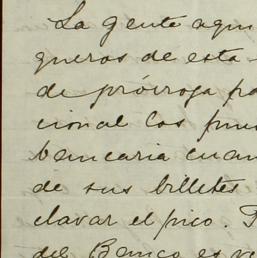 La gente aqui
queros de esta
de próiroga pa
cional los pue
bancaria cuan
de sus billetes
clavar el pico.
del Banco es ve